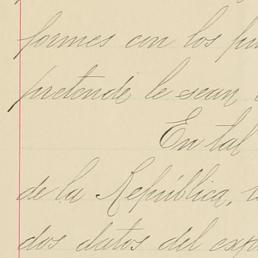 formes con los
pretende le sean
En tal
de la República,
dos datos del